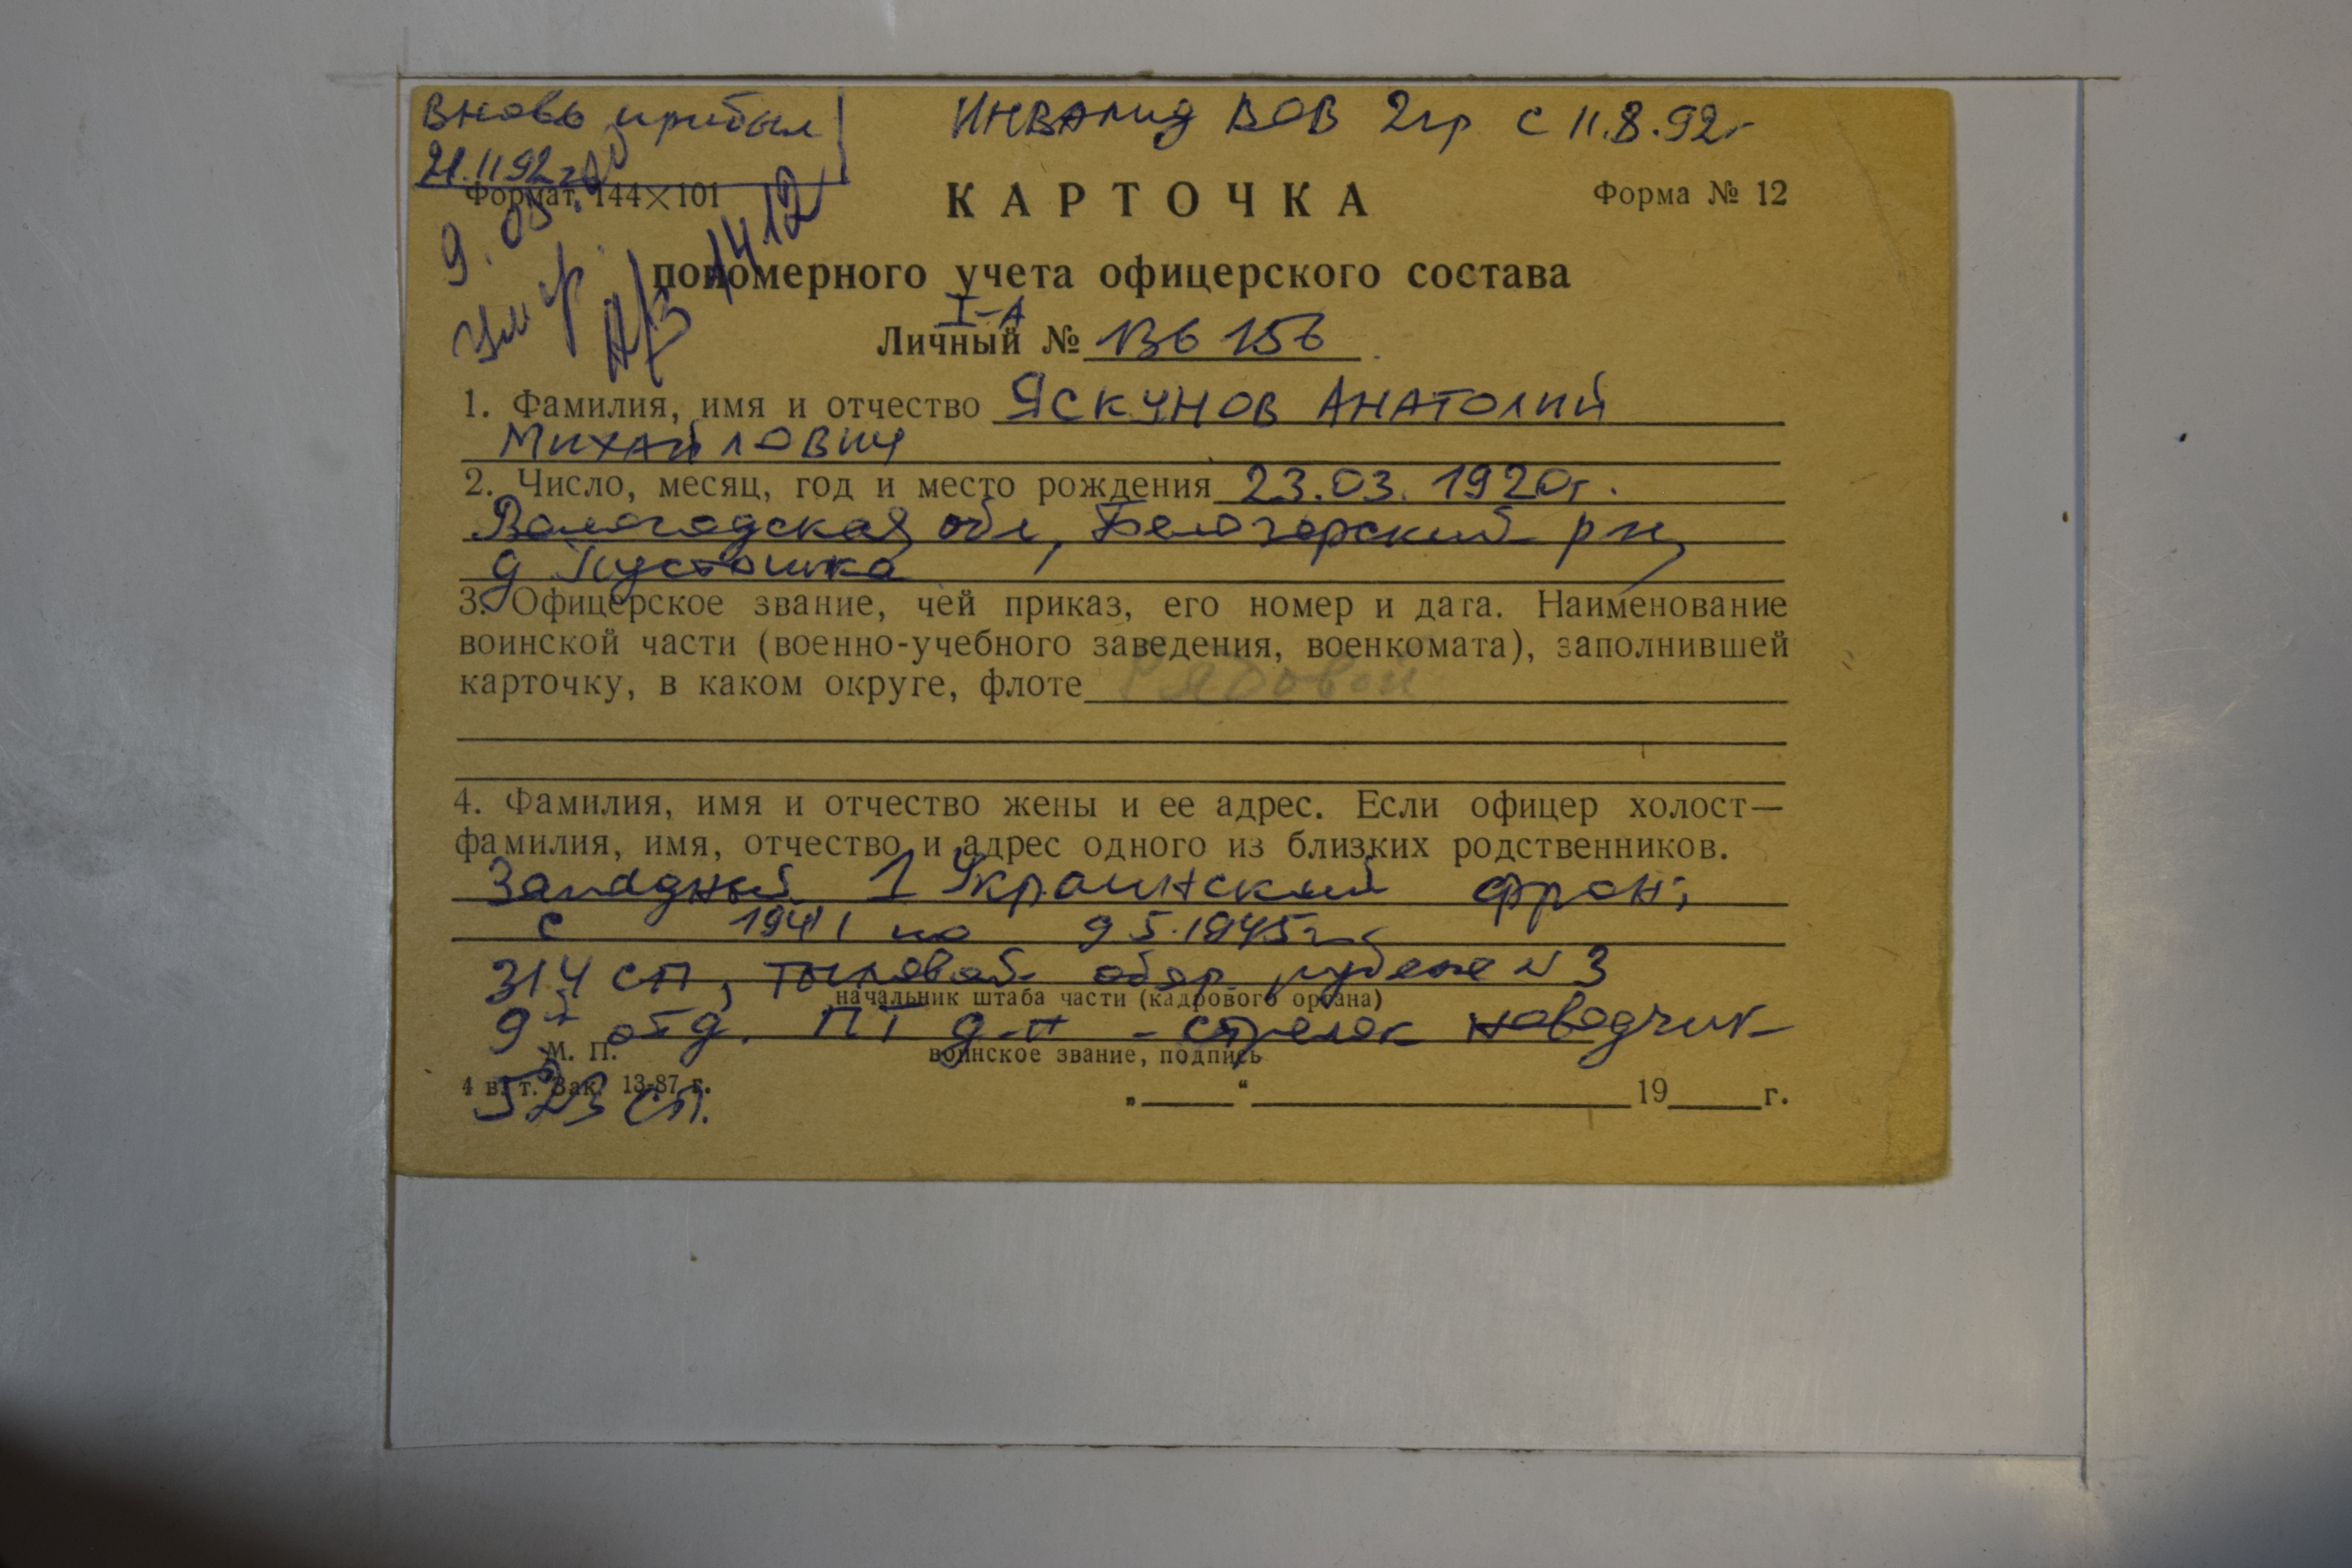 Вновь прибыл
21.11.92г
Инвалид ВОВ 2гр с 11.8.92г
Формат 144×101
КАРТОЧКА
Форма № 12
умер
А/з 1412
пономерного учета офицерского состава
I-А
Личный № 136156
1. Фамилия, имя и отчество Яскунов Анатолий
Михайлович
2. Число, месяц, год и место рождения 23.03.1920г.
Вологодская обл, Белозерский р-н,
д Пустошка
3. Офицерское звание, чей приказ, его номер и дата. Наименование
воинской части (военно-учебного заведения, военкомата), заполнившей
карточку, в каком округе, флоте Рядовой
4. Фамилия, имя и отчество жены и ее адрес. Если офицер холост—
фамилия, имя, отчество и адрес одного из близких родственников.
Западный 1 Украинский фронт
с 1941 по 9.5.1945г
314 сп, тыловой обор рубеж N 3
начальник штаба части (кадрового органа)
9й отд. ПТ д-н - стрелок наводчик
М. П.
воинское звание, подпись
4 в. т. Зак. 13-87 г.
523 сп.
„ “ 19 г.